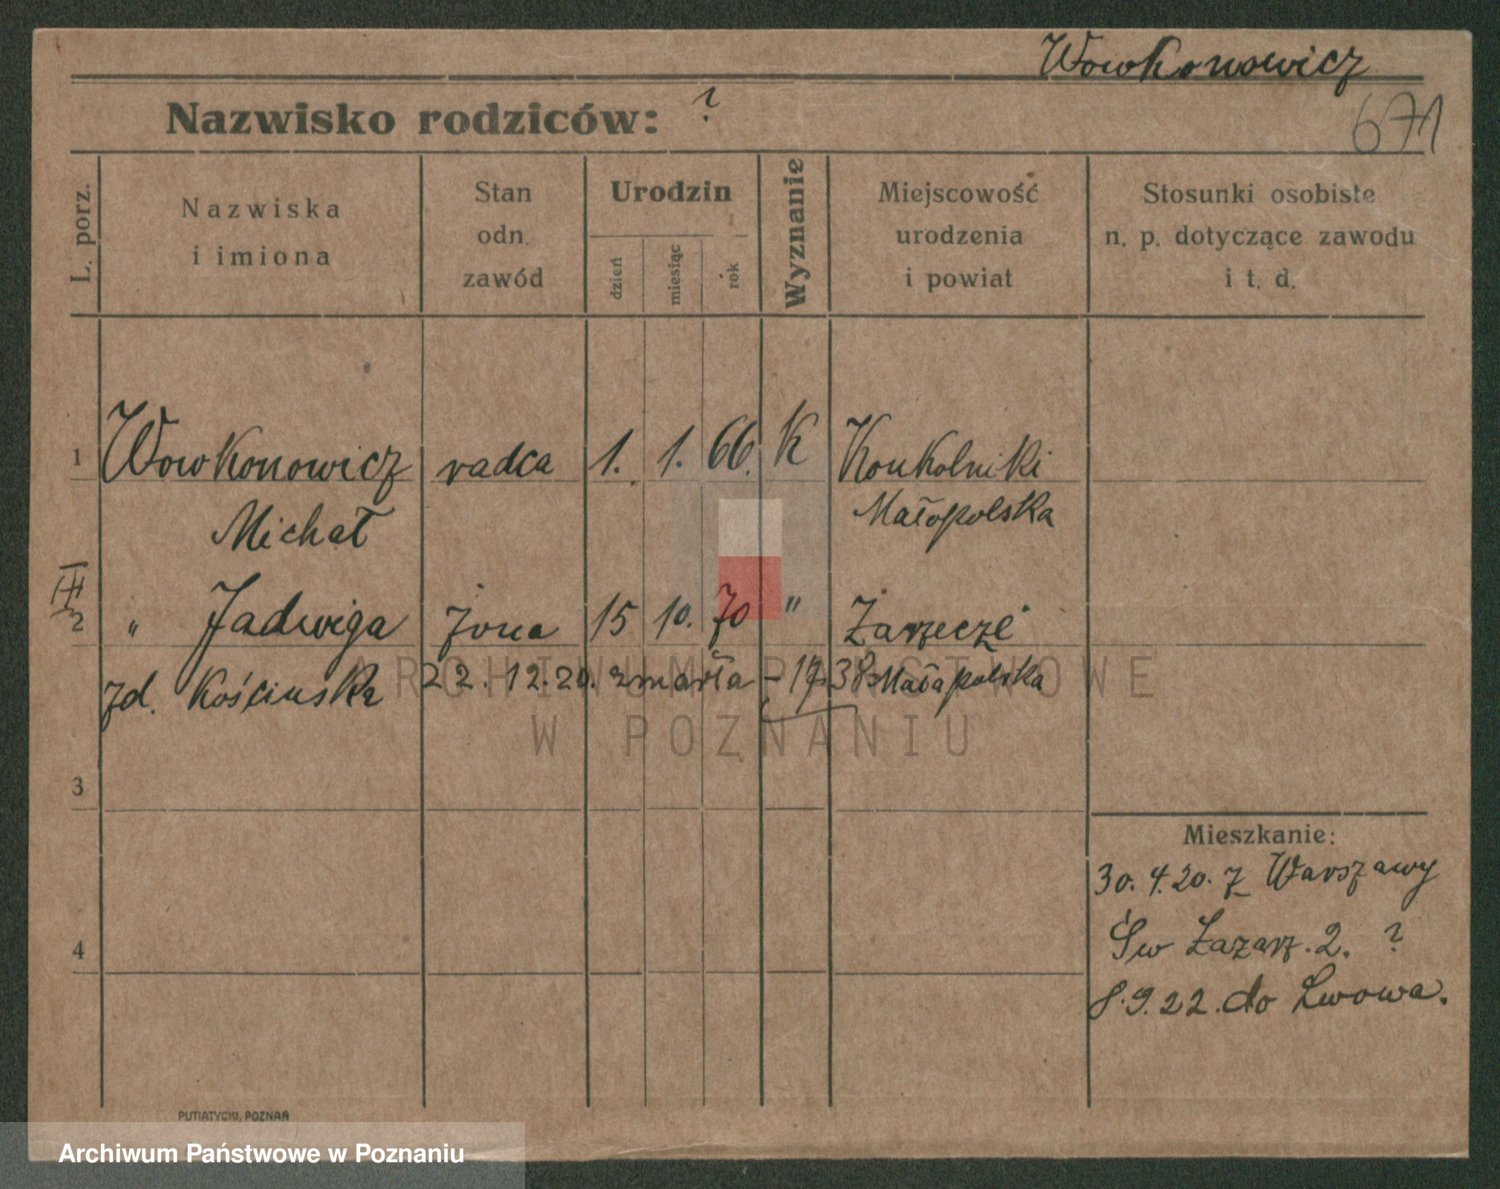 Wowkonowicz
Nazwisko rodziców: ?
671
L. porz.
Nazwiska
i imiona
Stan
odn.
zawód
Urodzin
dzień
miesiąc
rok
Wyznanie
Miejscowość
urodzenia
i powiat
Stosunki osobiste
n. p. dotyczące zawodu
i t. d.
1 Wowkonowicz radca 1. 1. 66. K Koukolniki
Michał Małopolska
III
2 " Jadwiga żona 15 10. 70 " Żarzecze
zd. Kościuska 22.12.20. zmarła - 17 38 Małapolska
3
Mieszkanie:
30.4.20. z Warszawy
Św Łazarz. 2. ?
4
8.9.22. do Lwowa.
PUTIATYCKI, POZNAŃ
ARCHIWUM PAŃSTWOWE
W POZNANIU
Archiwum Państwowe w Poznaniu